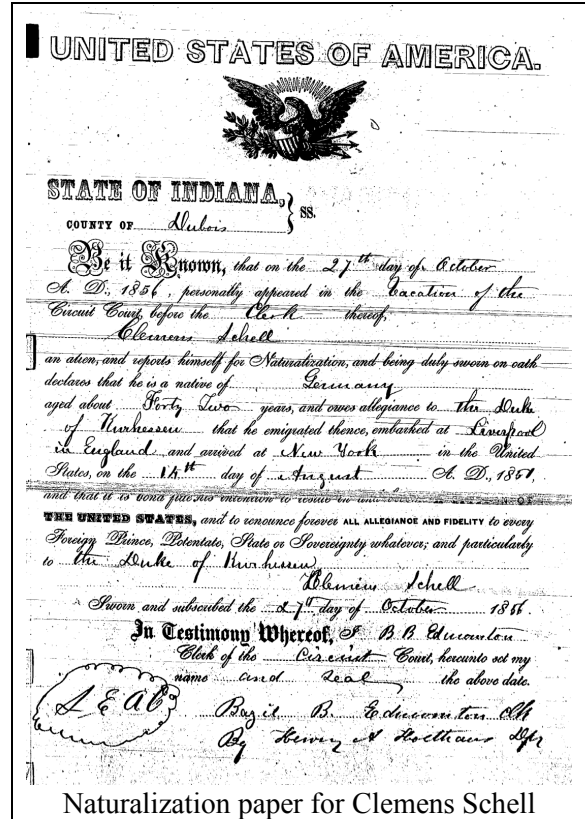 UNITED STATES OF AMERICA.
STATE OF INDIANA, } SS.
COUNTY OF Dubois
Be it Known, that on the 27th day of October
A. D., 1856, personally appeared in the Vacation of the
Circuit Court, before the Clerk thereof,
Clemens Schell
an alien, and reports himself for Naturalization, and being duly sworn on oath
declares that he is a native of Germany
aged about Forty Two years, and owes allegiance to the Duke
of Kurhessen that he emigrated thence, embarked at Liverpool
in England and arrived at New York in the United
States, on the 14th day of August A. D., 1851.
and that it is bona fide his intention to OF
THE UNITED STATES, and to renounce forever ALL ALLEGIANCE AND FIDELITY to every
Foreign Prince, Potentate, State or Sovereignty whatever; and particularly
to the Duke of Kurhessen
Clemens Schell
Sworn and subscribed the 27th day of October 1856
In Testimony Whereof, I B. B. Edmonston
Clerk of the Circuit Court, hereunto set my
name and seal the above date.
SEAL
Bazil B. Edmonston Clk
By Henry A Holthaus Dpty
Naturalization paper for Clemens Schell